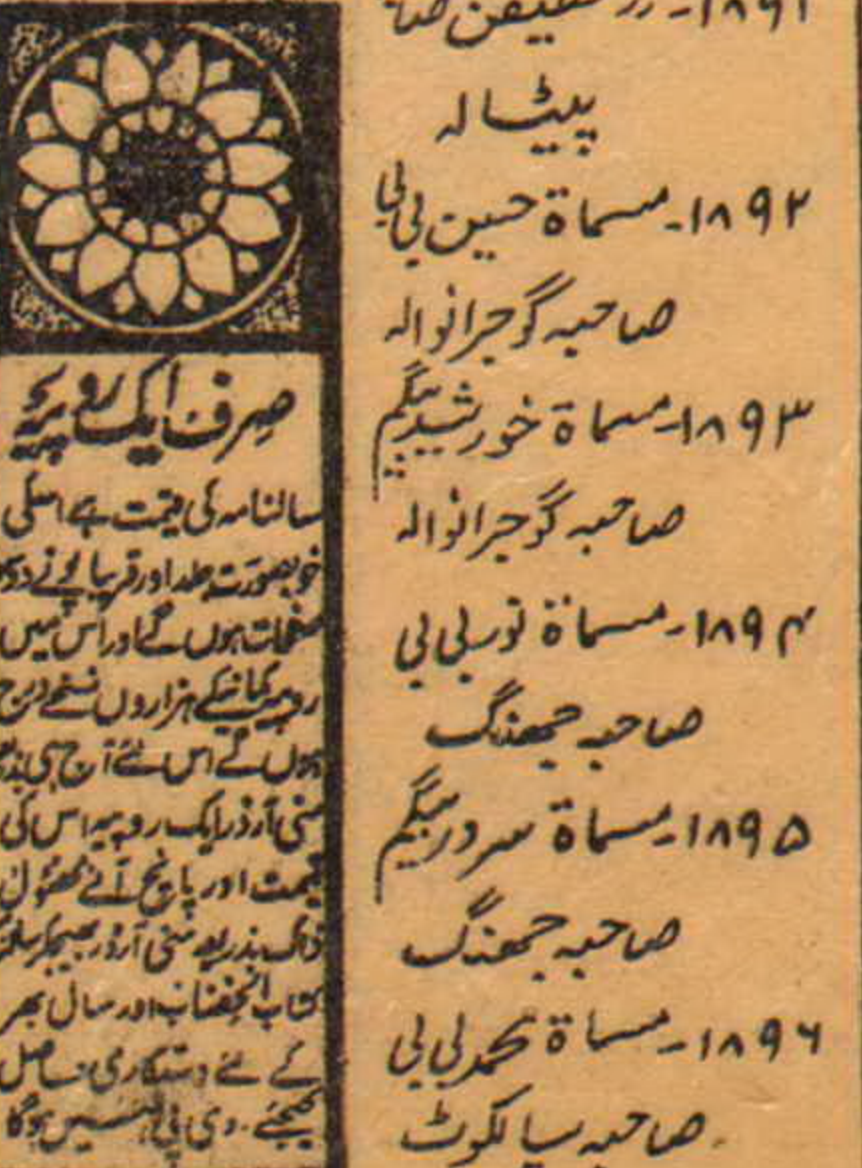 ۱۸۹۱۔ 〃
پٹیالہ
۱۸۹۲۔ مسماۃ حسین بی بی
صاحبہ گوجرانوالہ
۱۸۹۳۔ مسماۃ خورشید بیگم
صاحبہ گوجرانوالہ
۱۸۹۴۔ مسماۃ نور بی بی
صاحبہ جھنگ
۱۸۹۵۔ مسماۃ سرور بیگم
صاحبہ جھنگ
۱۸۹۶۔ مسماۃ محمد بی بی
صاحبہ سیالکوٹ
صرف ایک روپیہ
سالنامہ کی قیمت ہے اسکی
خوبصورت جلد اور قریباً پونے دو
صفحات ہوں گے اور اس میں
روپیہ کمانیکے ہزاروں نسخے درج
ہوں گے اس لئے آج ہی
منی آرڈر ایک روپیہ اس کی
قیمت اور پانچ آنے محصول
ڈاک بذریعہ منی آرڈر بھیجکر
کتاب اور سال بھر
کے لئے دستکاری حاصل
کیجئے۔ وی پی نہیں ہوگا